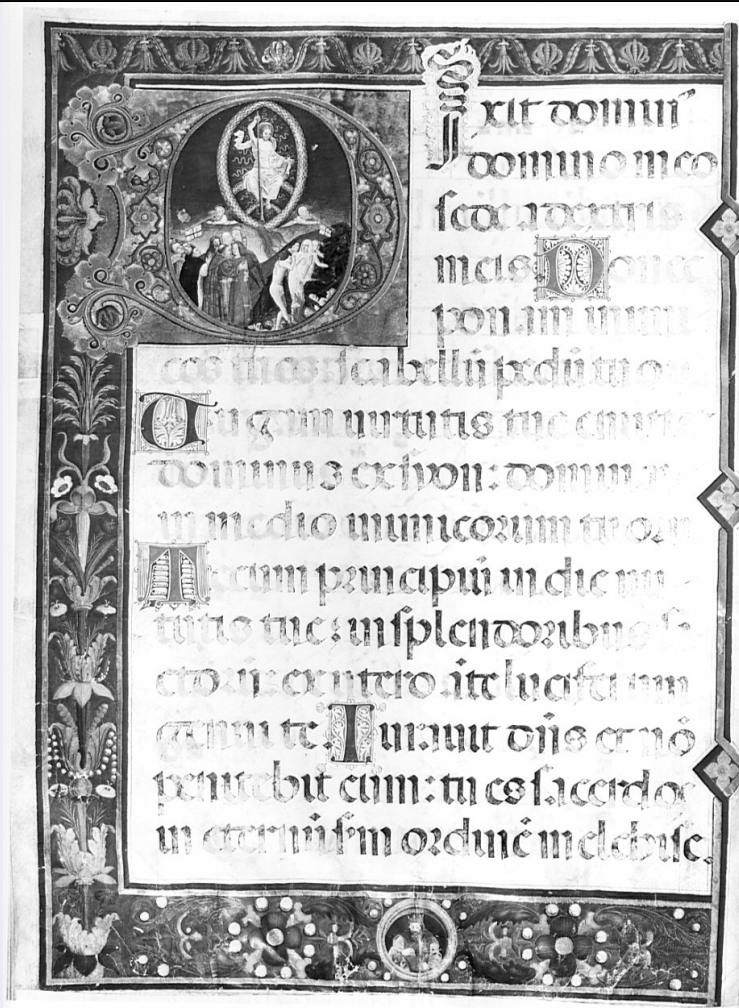 Dixit dominꝰ
domino meo
sede a dextris
meis: Donec
ponam inimi
cos tuos scabellũ pedũ tuoꝝ
Uirgam uirtutis tue emitte
dominus ex syon: dominare
in medio inimicorum tuorũ
Tecum principiũ in die uir
tutis tue: in splendoribus sã
ctorũ: ex utero ãte luciferum
genui te. Iurauit dñs et nõ
penitebit eum: tu es sacerdos
in eternũ: sm̃ ordinẽ melchisc.